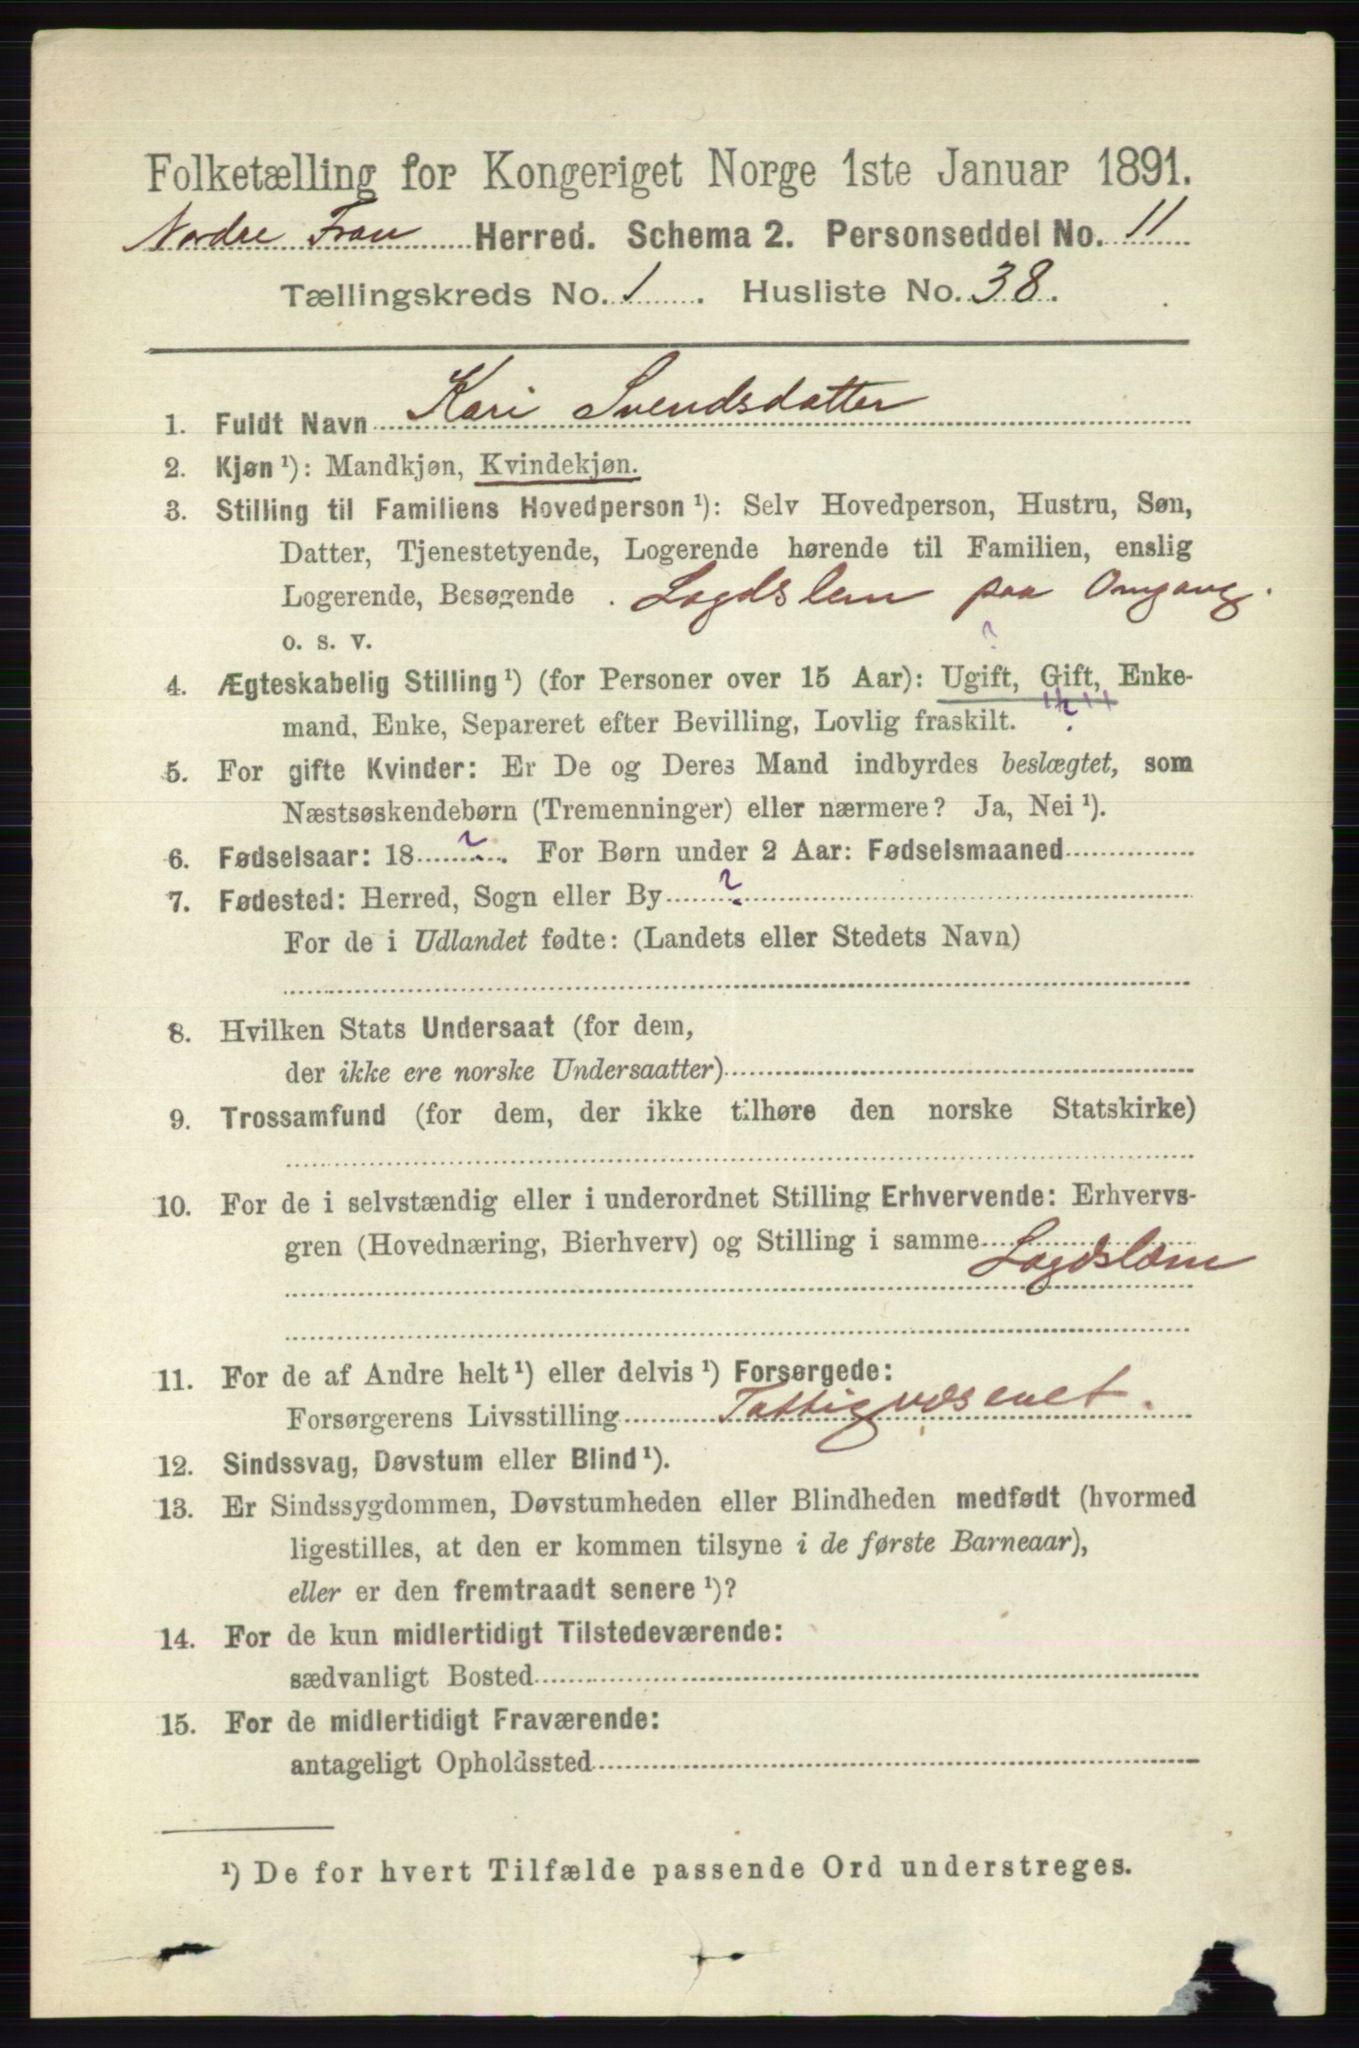 Folketælling for Kongeriget Norge 1ste Januar 1891.
Nordre Fron Herred. Schema 2. Personseddel No. 11
Tællingskreds No. 1. Husliste No. 38.
1. Fuldt Navn Kari Svendsdatter
2. Kjøn¹): Mandkjøn, Kvindekjøn.
3. Stilling til Familiens Hovedperson¹): Selv Hovedperson, Hustru, Søn,
Datter, Tjenestetyende, Logerende hørende til Familien, enslig
Logerende, Besøgende . Lægdslem paa Omgang.
o. s. v.
?
4. Ægteskabelig Stilling¹) (for Personer over 15 Aar): Ugift, Gift, Enke-
mand, Enke, Separeret efter Bevilling, Lovlig fraskilt. ?
5. For gifte Kvinder: Er De og Deres Mand indbyrdes beslægtet, som
Næstsøskendebørn (Tremenninger) eller nærmere? Ja, Nei¹).
6. Fødselsaar: 18 ? . For Børn under 2 Aar: Fødselsmaaned
7. Fødested: Herred, Sogn eller By ?
For de i Udlandet fødte: (Landets eller Stedets Navn)
8. Hvilken Stats Undersaat (for dem,
der ikke ere norske Undersaatter)
9. Trossamfund (for dem, der ikke tilhøre den norske Statskirke)
10. For de i selvstændig eller i underordnet Stilling Erhvervende: Erhvervs-
gren (Hovednæring, Bierhverv) og Stilling i samme Lægdslem
11. For de af Andre helt¹) eller delvis¹) Forsørgede:
Forsørgerens Livsstilling Fattigvæsenet.
12. Sindssvag, Døvstum eller Blind¹).
13. Er Sindssygdommen, Døvstumheden eller Blindheden medfødt (hvormed
ligestilles, at den er kommen tilsyne i de første Barneaar),
eller er den fremtraadt senere¹)?
14. For de kun midlertidigt Tilstedeværende:
sædvanligt Bosted
15. For de midlertidigt Fraværende:
antageligt Opholdssted
¹) De for hvert Tilfælde passende Ord understreges.